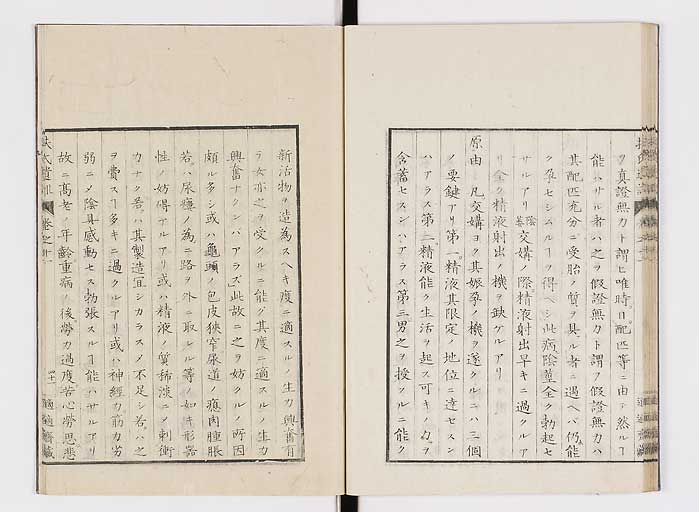 ヲ真證無力ト謂ヒ唯時日配匹等ニ由テ然ルヿ
能ハサル者ハ之ヲ假證無力ト謂フ假證無力ハ
其配匹充分ニ受胎ノ質ヲ具ル者ニ遇ヘバ仍能
ク孕セシムルヿヲ得ヘシ此病陰莖全ク勃起セ
サルアリ交媾ノ際精液射出早キニ過クルアリ
全ク精液射出ノ機ヲ缺ケルアリ
原由 凡交媾ヨク其娠孕ノ機ヲ遂クルニハ三個
ノ要鍵アリ第一精液其限定ノ地位ニ達セスン
ハアラス第二精液能ク生活ヲ起ス可キノ力ヲ
含蓄セスンハアラス第三男之ヲ授クルニ能ク
新活物ヲ造為スヘキ度ニ適スルノ生力興奮有
ラ女亦之ヲ受クルニ能ク其度ニ適スルノ生力
興奮ナクンバアラズ此故ニ之ヲ妨クルノ所因
頗ル多シ或ハ龜頭ノ包皮狹窄尿道ノ瘜肉腫脹
若ハ尿瘻ノ為ニ路ヲ外ニ取ルル等ノ如キ形器
性ノ妨碍アルアリ或ハ精液ノ質稀淡ニノ刺衝
カナク若其製造宜シカラスメ不足シ若ハ之
ヲ費スヿ多キニ過クルアリ或ハ神經力筋力劣
弱ニメ陰具感動セス勃張スルヿ能ハサルアリ
故ニ高老ノ年齡重病ノ後勞力過度苦心勞思悲
扶氏遺訓 卷之十一 四十 適適齋藏